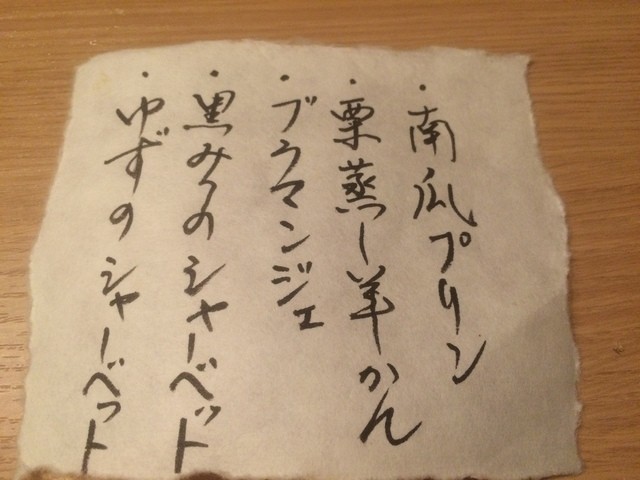 ・南瓜プリン
・栗蒸し羊かん
・ブラマンジェ
・黒みつのシャーベット
・ゆずのシャーベット